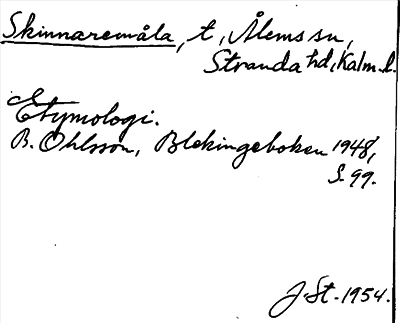 Skinnaremåla, t, Ålems sn,
Stranda hd, Kalm. l.
Etymologi.
B. Ohlsson, Blekingeboken 1948,
S. 99.
J. St. 1954.